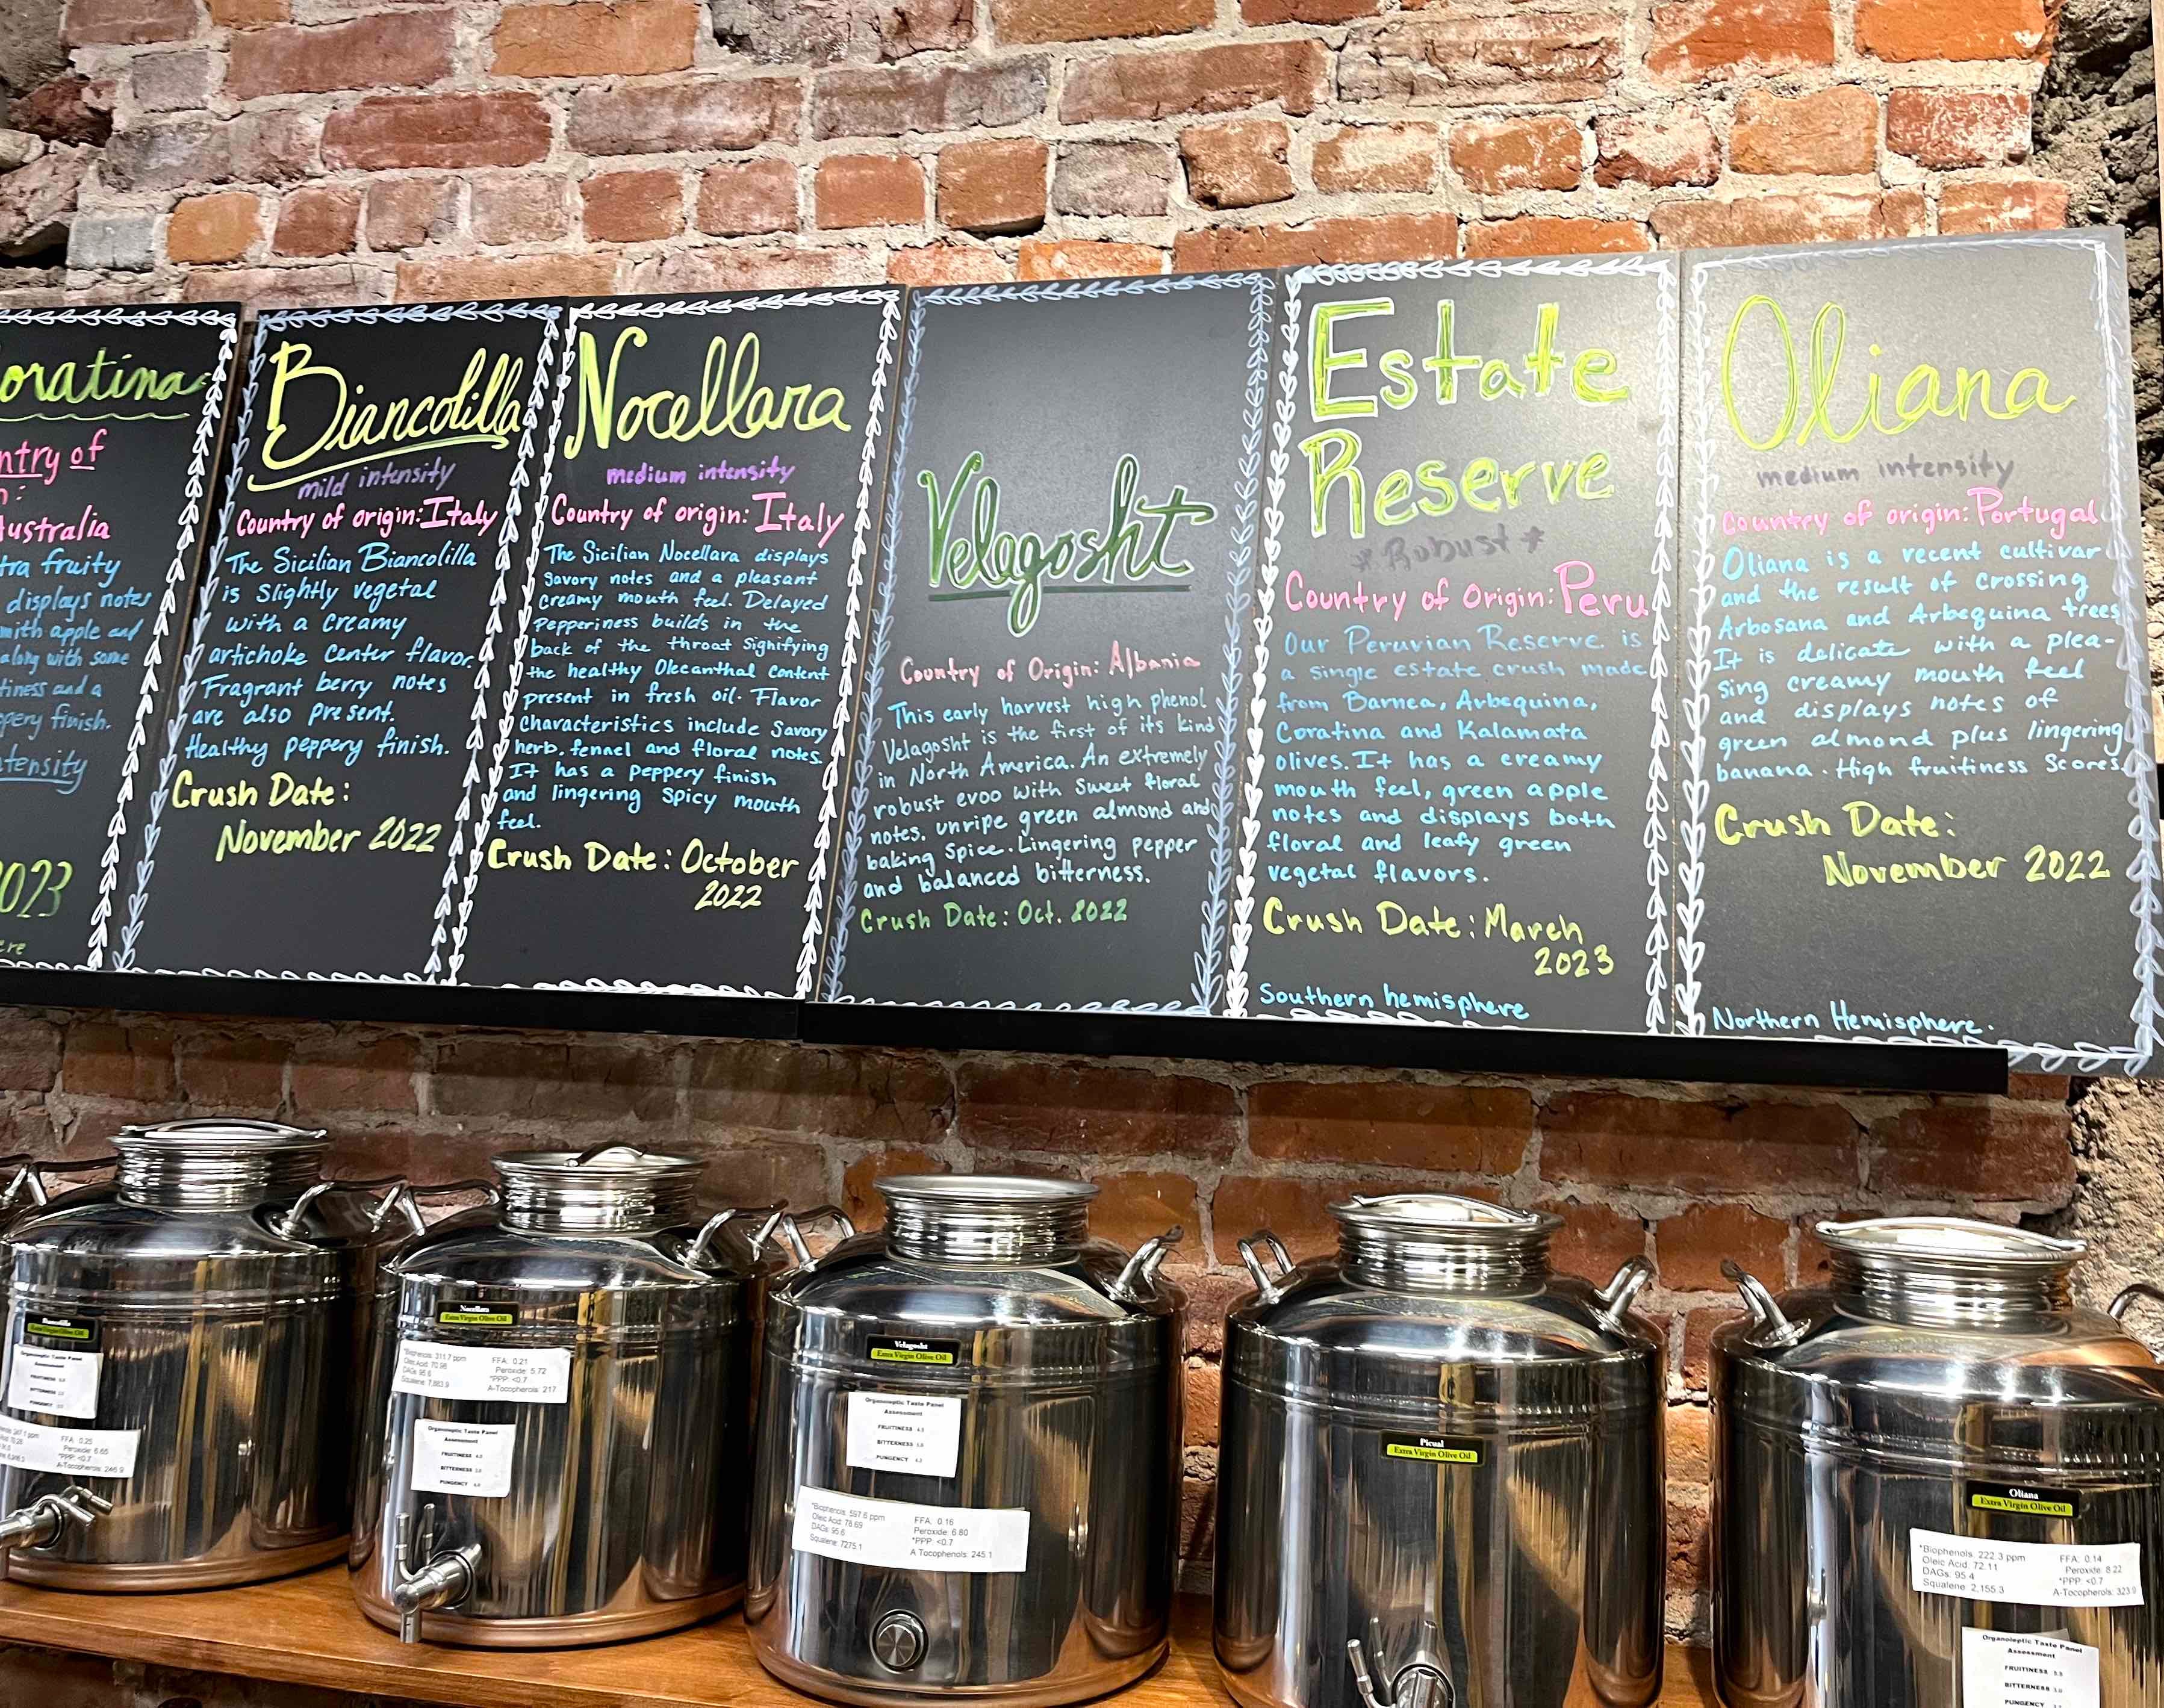 oratina
ntry of
n:
Australia
tra fruity
displays notes
mith apple and
along with some
tiness and a
pery finish.
tensity
2023
ere
Biancolilla
mild intensity
Country of origin: Italy
The Sicilian Biancolilla
is Slightly vegetal
with a creamy
artichoke center flavor.
Fragrant berry notes
are also present.
Healthy peppery finish.
Crush Date:
November 2022
Nocellara
medium intensity
Country of origin: Italy
The Sicilian Nocellara displays
savory notes and a pleasant
creamy mouth feel. Delayed
Pepperiness builds in the
back of the throat Signifying
the healthy Olecanthal content
present in fresh oil. Flavor
characteristics include Savory
herb, fennel and floral notes.
It has a peppery finish
and lingering spicy mouth
feel.
Crush Date: October
2022
Velagosht
Country of Origin: Albania
This early harvest high phenol
Velagosht is the first of its kind
in North America. An extremely
robust evoo with sweet floral
notes, unripe green almond and
baking spice. Lingering pepper
and balanced bitterness.
Crush Date: Oct. 2022
Estate
Reserve
*Robust*
Country of Origin: Peru
Our Peruvian Reserve is
a single estate crush made
from Barnea, Arbequina,
Coratina and Kalamata
olives. It has a creamy
mouth feel, green apple
notes and displays both
floral and leafy green
vegetal flavors.
Crush Date: March
2023
Southern hemisphere
Oliana
medium intensity
Country of origin: Portugal
Oliana is a recent cultivar
and the result of crossing
Arbosana and Arbequina trees
It is delicate with a plea-
sing creamy mouth feel
and displays notes of
green almond plus lingering
banana. High fruitiness Scores.
Crush Date:
November 2022
Northern Hemisphere.
Biancolilla
Extra Virgin Olive Oil
Organoleptic Taste Panel
Assessment
FRUITINESS
BITTERNESS
PUNGENCY
FFA: 0.25
Peroxide: 6.65
*PPP: <0.7
A-Tocopherols: 246.9
Nocellara
Extra Virgin Olive Oil
*Biophenols: 311.7 ppm
Oleic Acid: 70.98
DAGs: 95.6
Squalene: 7,883.9
FFA: 0.21
Peroxide: 5.72
*PPP: <0.7
A-Tocopherols: 217
Organoleptic Taste Panel
Assessment
FRUITINESS
BITTERNESS
PUNGENCY
Velagosht
Extra Virgin Olive Oil
Organoleptic Taste Panel
Assessment
FRUITINESS
BITTERNESS
PUNGENCY
*Biophenols: 597.6 ppm
Oleic Acid: 78.69
DAGs: 95.6
Squalene: 7275.1
FFA: 0.16
Peroxide: 6.80
*PPP: <0.7
A Tocopherols: 245.1
Picual
Extra Virgin Olive Oil
Oliana
Extra Virgin Olive Oil
*Biophenols: 222.3 ppm
Oleic Acid: 72.11
DAGs: 95.4
Squalene: 2,155.3
FFA: 0.14
Peroxide: 8.22
*PPP: <0.7
A-Tocopherols: 323.9
Organoleptic Taste Panel
Assessment
FRUITINESS
BITTERNESS
PUNGENCY